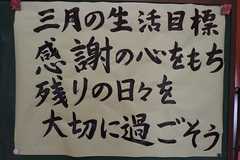 三月の生活目標
感謝の心をもち
残りの日々を
大切に過ごそう